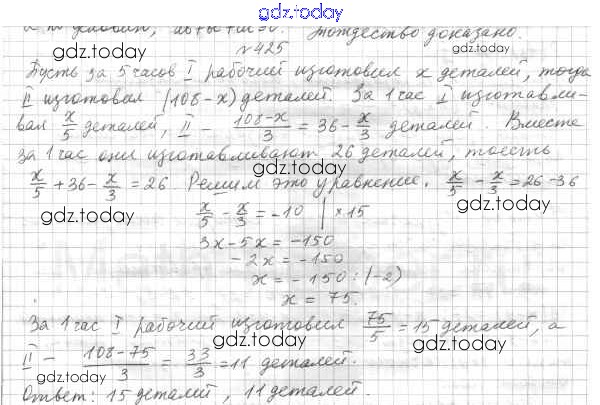 gdz.today
условии, ab+bc+ac=0. Тождество доказано.
gdz.today gdz.today
№425
Пусть за 5 часов I рабочий изготовил x деталей, тогда
II изготовил (108-x) деталей. За 1 час I изготавли-
вал x/5 деталей, II - (108-x)/3 = 36 - x/3 деталей. Вместе
gdz.today gdz.today
за 1 час они изготавливают 26 деталей, то есть
x/5 + 36 - x/3 = 26. Решим это уравнение. x/5 - x/3 = 26-36
gdz.today gdz.today
x/5 - x/3 = -10 | ×15
3x-5x = -150
-2x = -150
x = -150:(-2)
x = 75.
За 1 час I рабочий изготовил 75/5 = 15 деталей, а
gdz.today gdz.today
II - (108-75)/3 = 33/3 = 11 деталей.
gdz.today gdz.today
Ответ: 15 деталей, 11 деталей.